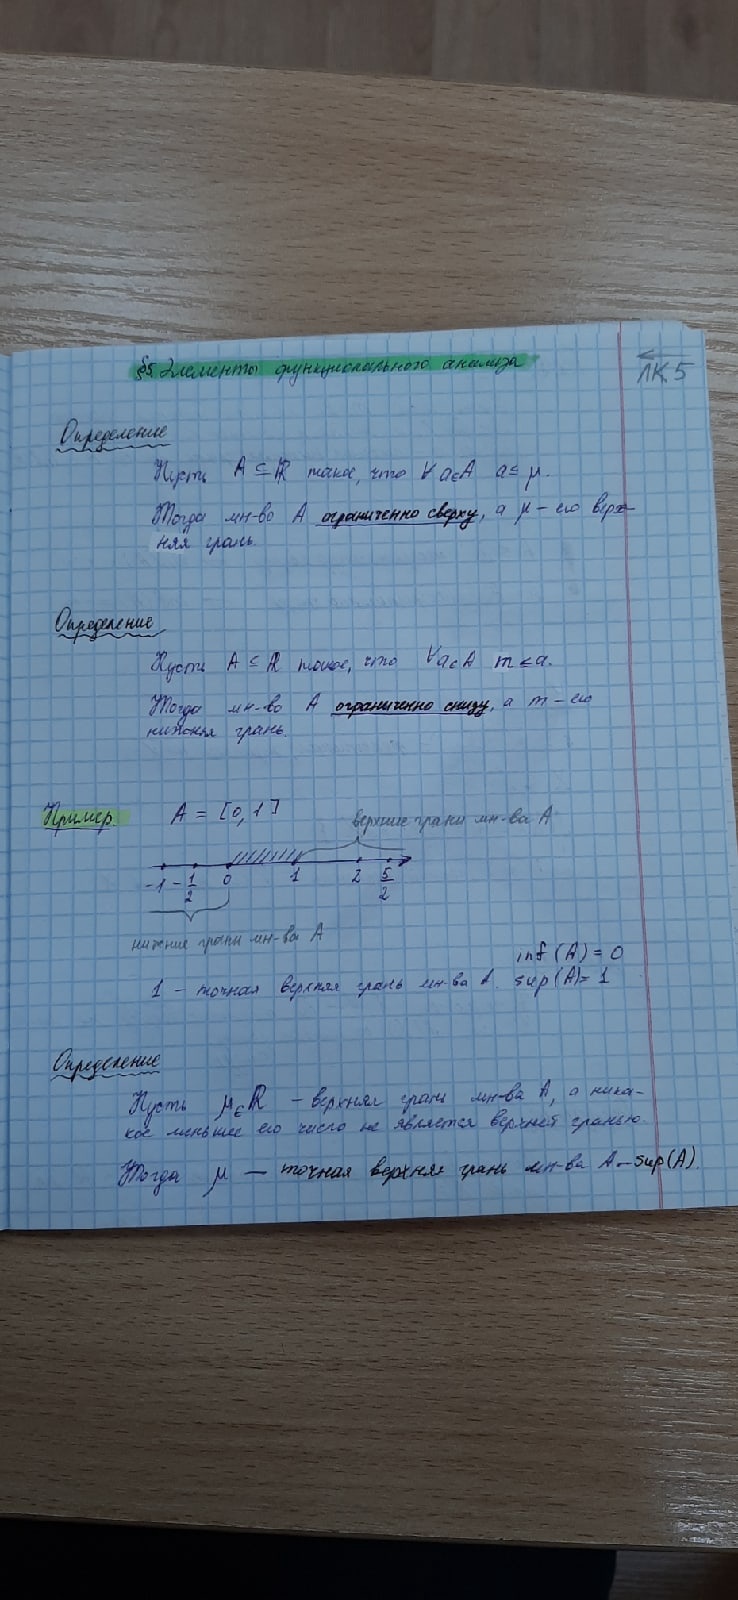 §5 Элементы функционального анализа
ЛК.5
Определение
Пусть A ⊆ ℝ такое, что ∀ a∈A a ≤ μ.
Тогда мн-во A ограниченно сверху, а μ – его верх-
няя грань.
Определение
Пусть A ⊆ ℝ такое, что ∀a∈A m ≤ a.
Тогда мн-во A ограниченно снизу, а m – его
нижняя грань.
Пример. A = [0, 1]
верхние грани мн-ва A
-1 -1/2 0 1 2 5/2
нижние грани мн-ва A
inf(A) = 0
1 – точная верхняя грань мн-ва A. sup(A)= 1
Определение
Пусть μ∈ℝ – верхняя грань мн-ва A, а ника-
кое меньшее его число не является верхней гранью.
Тогда μ – точная верхняя грань мн-ва A – sup(A)